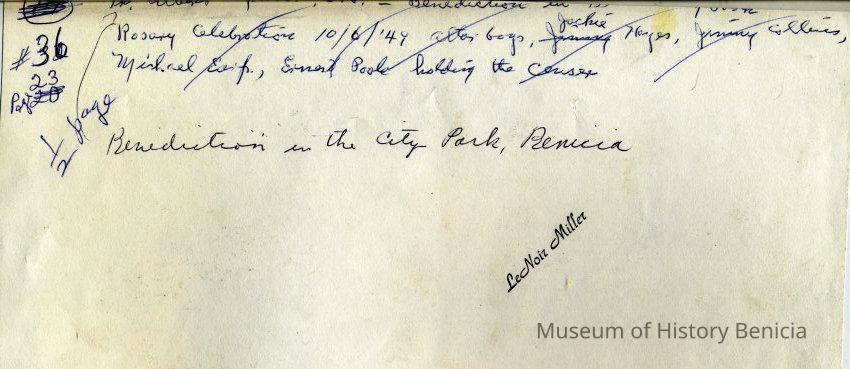 Benediction in
Jackie
Rosary Celebration 10/6/'49 altar boys, Jimmy Hayes, Jimmy Collins,
Michael Earp., Ernest Pook holding the censer
#36
23
Page 20
1/2 page
Benediction in the City Park, Benicia
LeNoir Miller
Museum of History Benicia